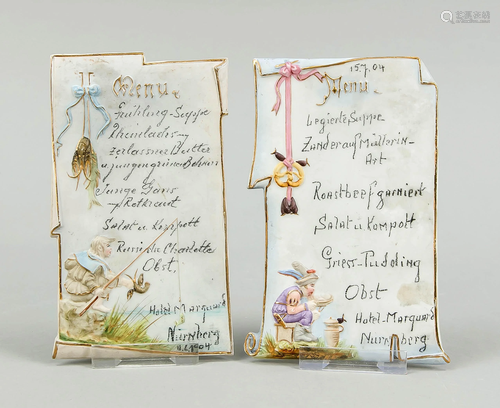 Menu
Frühling-Suppe
Rheinlachs
zerlassner Butter
u jungen grünen Bohnen
Junge Gans
Rotkraut
Salat u Kompott
Russische Charlotte
Obst,
Hotel-Marquard
Nürnberg
04
15.7.04
Menu
Legierte Suppe
Zander auf Müllerin-
Art
Roastbeef garniert
Salat u Kompott
Griess-Pudding
Obst
Hotel-Marquard
Nurnberg